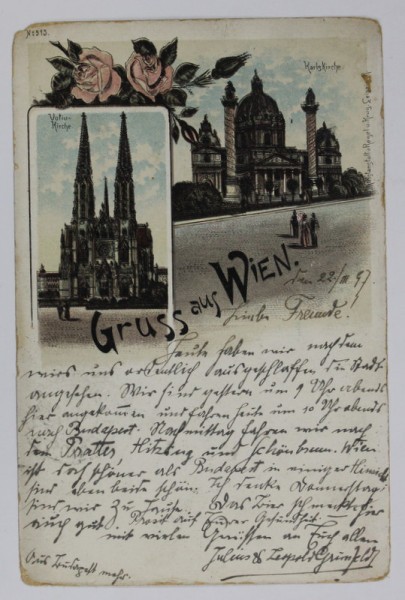 No 513.
Votiv-
Kirche
Karlskirche.
Gruss aus WIEN.
den 22/III 97
Liebe Freunde!
Heute haben wir nachdem
wir uns ordentlich ausgeschlaffen die Stadt
angesehen. Wir sind gestern um 9 Uhr abends
hier angekommen und fahren heute um 10 Uhr abends
nach Budapest. Nachmittag fahren wir nach
dem Prater, Hitzing und Schönbrunn. Wien
ist doch schöner als Budapest in einiger Hinsicht
sind eben beide schön. Ich denke Donnerstag
sind wir zu Hause. Das Bier schmeckt hier
auch gut. Prosit auf Eurer Gesundheit.
mit vielen Grüssen an Euch allen
Julius & Leopold Grünfeld
Aus Budapest mehr.